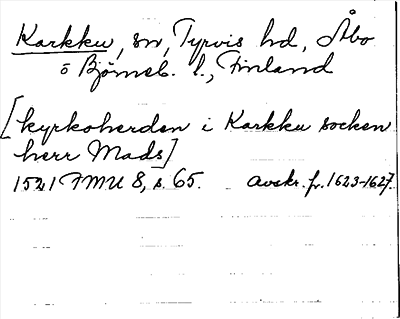 Karkku, sn, Tyrvis hd, Åbo
o Björneb. l., Finland
[kyrkoherden i Karkku socken
herr Mads]
1521 FMU 8, s. 65. Avskr. fr. 1623-1627.